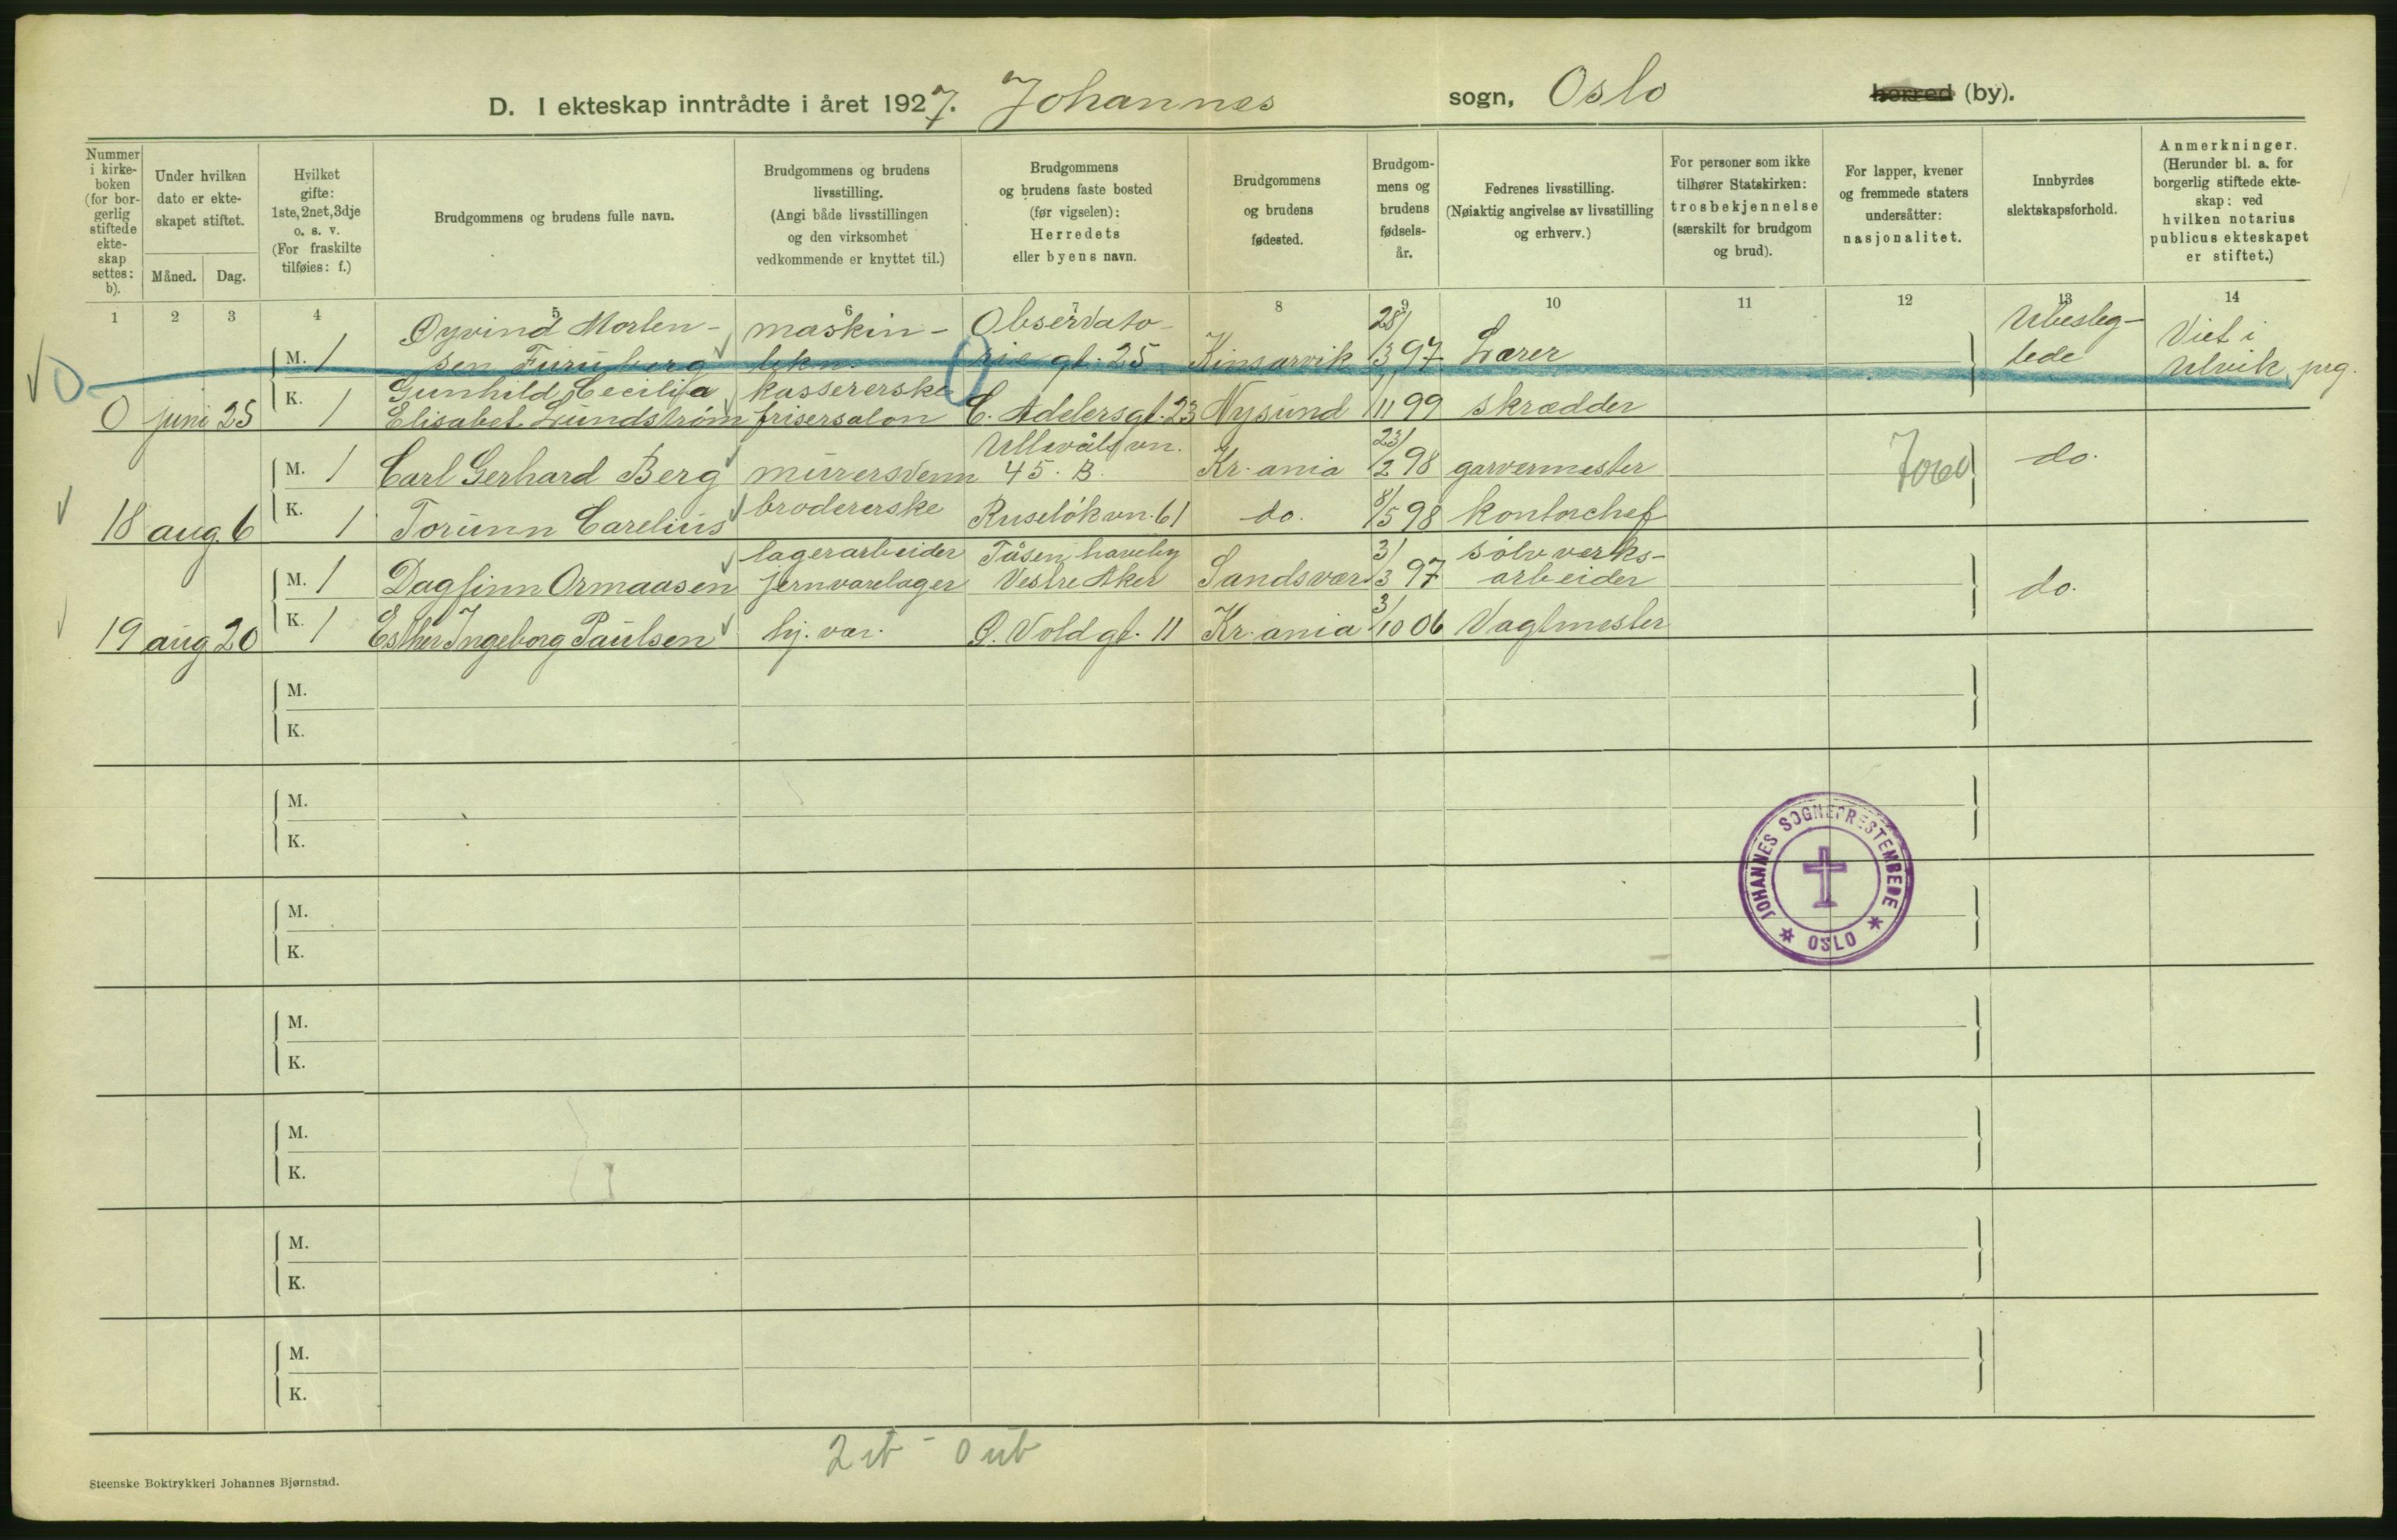 D. I ekteskap inntrådte i året 1927. Johannes sogn, Oslo herred (by).
Nummer i kirke-boken (for bor-gerlig stiftede ekte-skap settes: b).
Under hvilken dato er ekte-skapet stiftet.
Måned. Dag.
Hvilket gifte: 1ste, 2net, 3dje o. s. v. (For fraskilte tilføies: f.)
Brudgommens og brudens fulle navn.
Brudgommens og brudens livsstilling. (Angi både livsstillingen og den virksomhet vedkommende er knyttet til.)
Brudgommens og brudens faste bosted (før vigselen): Herredets eller byens navn.
Brudgommens og brudens fødested.
Brudgom-mens og brudens fødsels-år.
Fedrenes livsstilling. (Nøiaktig angivelse av livsstilling og erhverv.)
For personer som ikke tilhører Statskirken: trosbekjennelse (særskilt for brudgom og brud).
For lapper, kvener og fremmede staters undersåtter: nasjonalitet.
Innbyrdes slektskapsforhold.
Anmerkninger. (Herunder bl. a. for borgerlig stiftede ekte-skap: ved hvilken notarius publicus ekteskapet er stiftet.)
1 2 3 4 5 6 7 8 9 10 11 12 13 14
Øyvind Morten- maskin- Observato- 28/ Ubesleg- Viet i
M. 1 sen Furuberg tekn. riegt. 25 Kinsarvik 3 97 Lærer tede Ulvik prg.
K. Gunhild Cecilia kassererske
0 juni 25 1 Elisabet Lundstrøm frisersalon C. Adelersgt. 23 Nysund /11 99 skrædder
Ullevålsvn. 23/
M. 1 Carl Gerhard Berg murersvenn 45. B. Kr.ania 2 98 garvermester do.
K. brodererske 8/
18 aug. 6 1 Torunn Carelius Ruseløkvn. 61 do. 5 98 kontorchef
lagerarbeider Tåsen haveby 3/ sølvverks-
M. 1 Dagfinn Ormaasen jernvarelager Vestre Aker Sandsvær 3 97 arbeider do.
K. 3/
19 aug 20 1 Esther Ingeborg Paulsen hj. vær. Ø. Voldgt. 11 Kr.ania 10 06 Vagtmester
M.
K.
M.
K.
JOHANNES SOGNEPRESTEMBEDE
OSLO
M.
K.
M.
K.
M.
K.
M.
K.
M.
K.
Steenske Boktrykkeri Johannes Bjørnstad.